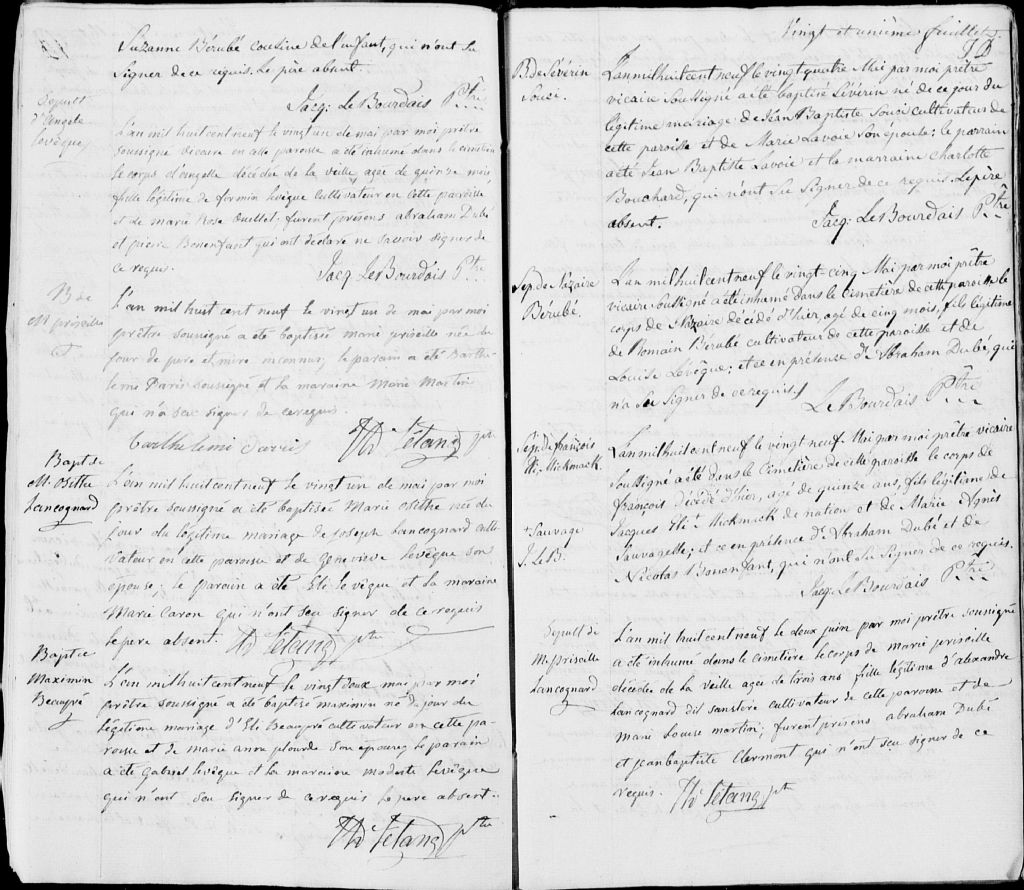 Suzanne Bérubé cousine de l'enfant, qui n'ont su
signer de ce requis. Le père absent.
Jacq. LeBourdais Ptre
Sepult
d'Angele
Levêque
L'an mil huit cent neuf le vingt un de mai par moi prêtre
soussigné vicaire en cette paroisse a été inhumé dans le cimetiere
le corps d'angelle décédée de la veille, agée de quinze mois
fille légitime de firmin levêque cultivateur en cette paroisse
et de marie Rose ouellet. furent présens abraham Dubé
et pierre Bonenfant qui ont déclaré ne savoir signer de
ce requis.
Jacq LeBourdais Ptre
B de
M priscille
L'an mil huit cent neuf le vingt un de mai par moi
prêtre soussigné a été baptisée marie priscille née du
jour de pere et mere inconnus; le parain a été Barthe-
lemi Paris soussigné et la maraine Marie Martin
qui n'a seu signer de ce requis.
barthelemi Paris
Thd Létang ptre
Bapt de
M. Osithe
Lancognard
L'an mil huit cent neuf le vingt un de mai par moi
prêtre soussigné a été baptisée Marie Osithe née du
jour du légitime mariage de joseph Lancognard culti
vateur en cette paroisse et de Genevieve levêque son
épouse; le parain a été Eli levêque et la maraine
Marie Caron qui n'ont seu signer de ce requis
le pere absent. Thd Létang ptre
Bapt de
Maximin
Beaupré
L'an mil huit cent neuf le vingt deux mai par moi
prêtre soussigné a été baptisé maximin né du jour du
légitime mariage d'Eli Beaupré cultivateur en cette pa-
roisse et de marie anne plourde son épouse; le parain
a été Gabriel levêque et la maraine modeste levêque
qui n'ont seu signer de ce requis le pere absent.
Thd Létang ptre
Vingt et unième feuillet
B de Sévérin
Souci.
L'an mil huit cent neuf le vingt quatre Mai par moi prêtre
vicaire soussigné a été baptisé Séverin né de ce jour du
légitime mariage de Jean Baptiste Souci cultivateur de
cette paroisse et de Marie Lavoie son épouse: le parrain
a été Jean Baptiste Lavoie et la marraine Charlotte
Bouchard, qui n'ont su signer de ce requis. Le père
absent.
Jacq: LeBourdais Ptre
Sep. de Nazaire
Bérubé.
L'an mil huit cent neuf le vingt-cinq Mai par moi prêtre
vicaire soussigné a été inhumé dans le cimetière de cette paroisse le
corps de Nazaire décédé d'hier, agé de cinq mois, fils légitime
de Romain Bérubé cultivateur de cette paroisse et de
Louise Levêque; et ce en présence d'Abraham Dubé, qui
n'a su signer de ce requis.
LeBourdais Ptre
Sep. de françois
Mickmack.
+ Sauvage
J. LeB.
L'an mil huit cent neuf le vingt neuf Mai par moi prêtre vicaire
soussigné a été dans le Cimetière de cette paroisse le corps de
françois décédé d'hier, agé de quinze ans, fils légitime de
Jacques Mickmack de nation et de Marie Agnès
Sauvagesse; et ce en présence d'Abraham Dubé et de
Nicolas Bonenfant, qui n'ont su signer de ce requis.
Jacq: LeBourdais Ptre
Sepult de
M. priscille
Lancognard
L'an mil huit cent neuf le deux juin par moi prêtre soussigné
a été inhumé dans le cimetière le corps de marie priscille
décédée de la veille agée de trois ans fille légitime d'alexandre
Lancognard dit cultivateur de cette paroisse et de
marie Louise martin; furent présens abraham Dubé
et jean baptiste Clermont qui n'ont seu signer de ce
requis. Thd Létang ptre